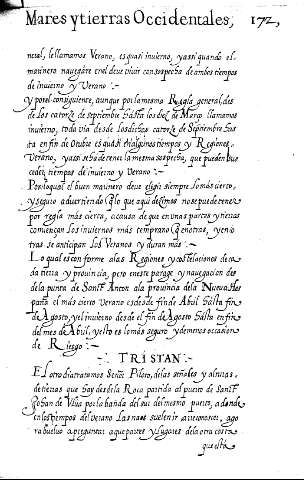 Mares y tierras Occidentales, 172,
neral, le llamamos Verano, es quasi invierno, y assi quando el
marinero navegare en el deve vivir con sospecha de ambos tiempos
de invierno y Verano :~
Y por el consiguiente, aunque por la mesma Regla general, des
de los catorze de septiembre hasta los diez de Março llamamos
invierno, toda via desde los dichos catorze de Septiembre has
ta en fin de Otubre es quasi en algunos tiempos y Regiones
Verano, y assi se ha de tener la mesma sospecha, que pueden suc
ceder tiempos de invierno y Verano :~
Por lo qual el buen marinero deve elegir siempre lo más cierto,
y seguro advertiendo q̃ lo que aqui dezimos no se puede tener
por regla más cierta, a causa de que en unas partes y tierras
comiençan los inviernos más temprano q̃ en otras, y en o
tras se anticipan los Veranos y duran más :~
Lo qual es conforme a las Regiones y costelaciones de ca
da tierra y provincia, pero en este parage y navegacion des
de la punta de Sant Anton a la provincia de la Nueva Hes
paña el más cierto Verano es desde fin de Abril hasta fin
de Agosto, y el invierno desde el fin de Agosto hasta en fin
del mes de Abril, y esto es lo más seguro y de menos occasion
de Riesgo :~
:~ TRISTAN :~
El otro dia tratamos Señor Piloto, de las señales y alturas,
de tierras que hay desde la Roca partida al puerto de Sant
Johan de Ulua por la banda del sur del mesmo puerto, a donde
en los tiempos del Verano las naos suelen ir a reconoscer, ago
ra buelvo a preguntar a que partes y lugares de la otra costa
que está